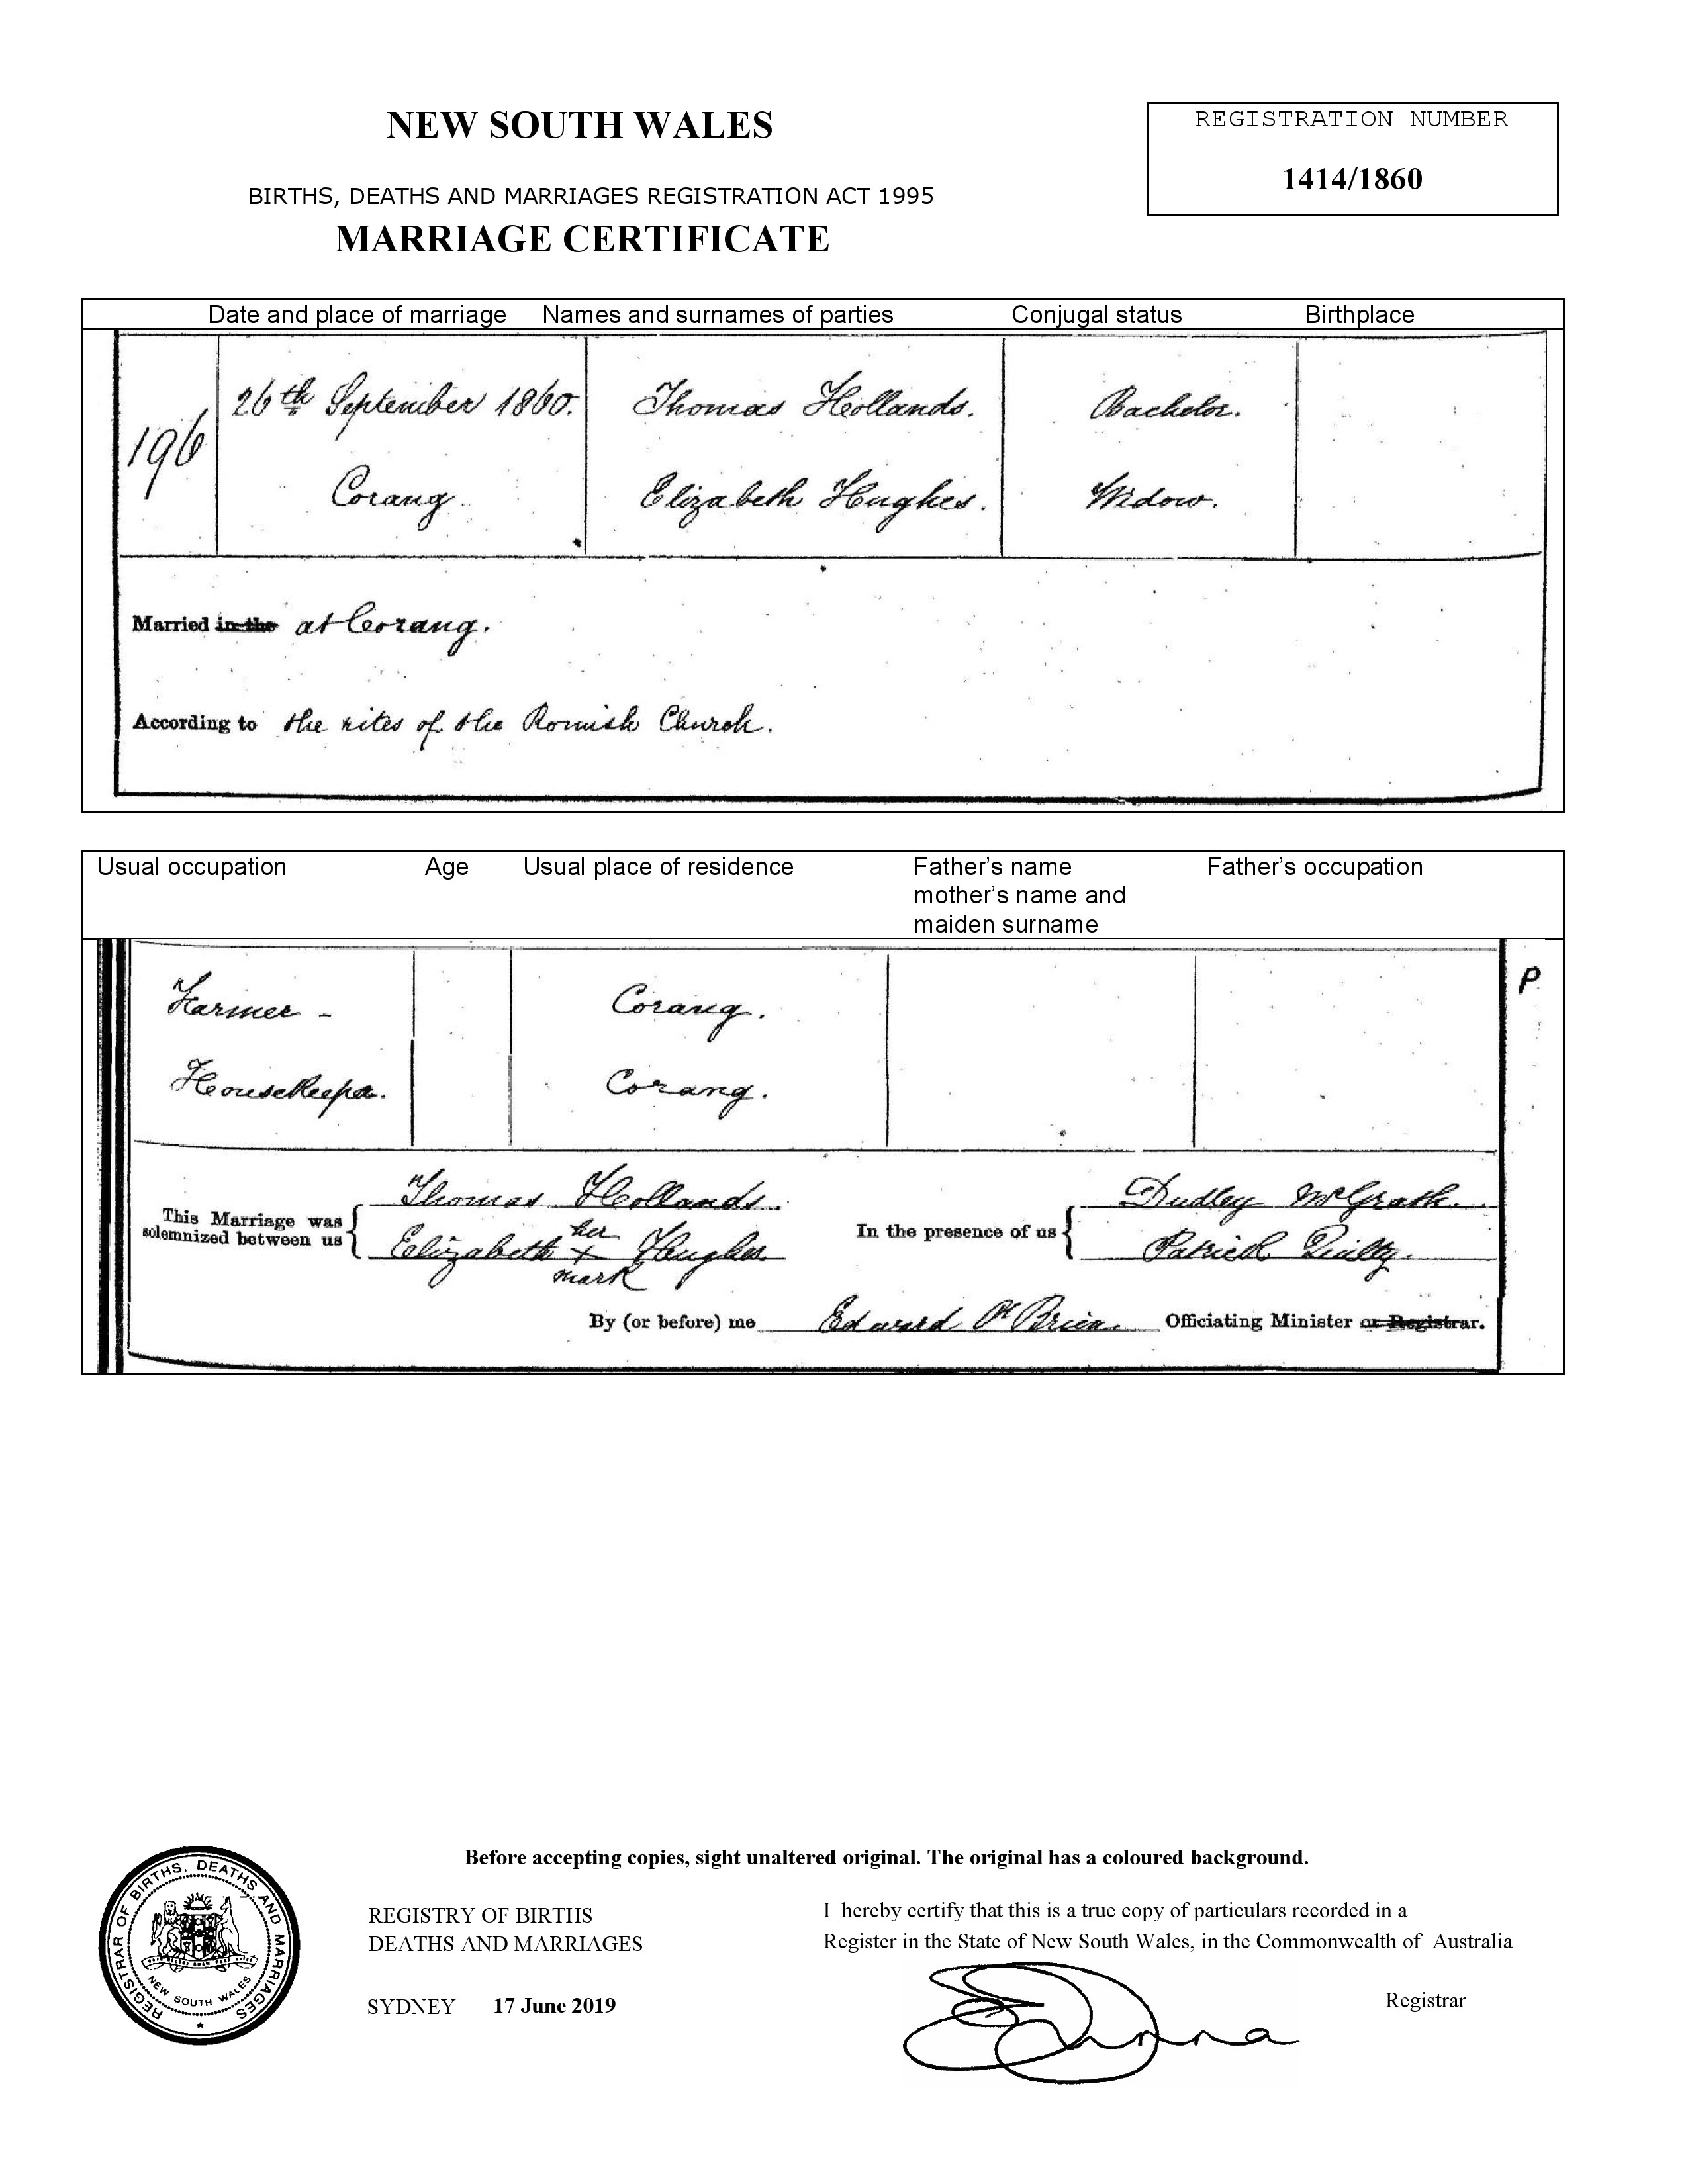 NEW SOUTH WALES
REGISTRATION NUMBER
1414/1860
BIRTHS, DEATHS AND MARRIAGES REGISTRATION ACT 1995
MARRIAGE CERTIFICATE
Date and place of marriage Names and surnames of parties Conjugal status Birthplace
26th September 1860. Thomas Hollands. Bachelor.
196
Corang. Elizabeth Hughes. Widow.
Married in the at Corang.
According to the rites of the Romish Church.
Usual occupation Age Usual place of residence Father's name Father's occupation
mother's name and
maiden surname
P
Farmer - Corang.
Housekeeper. Corang.
This Marriage was solemnized between us { Thomas Hollands.
Elizabeth her x mark Hughes
In the presence of us { Dudley McGrath.
Patrick Quilty.
By (or before) me Edward O'Brien Officiating Minister or Registrar.
Before accepting copies, sight unaltered original. The original has a coloured background.
REGISTRAR OF BIRTHS, DEATHS AND MARRIAGES
NEW SOUTH WALES
REGISTRY OF BIRTHS
DEATHS AND MARRIAGES
SYDNEY 17 June 2019
I hereby certify that this is a true copy of particulars recorded in a
Register in the State of New South Wales, in the Commonwealth of Australia
Registrar